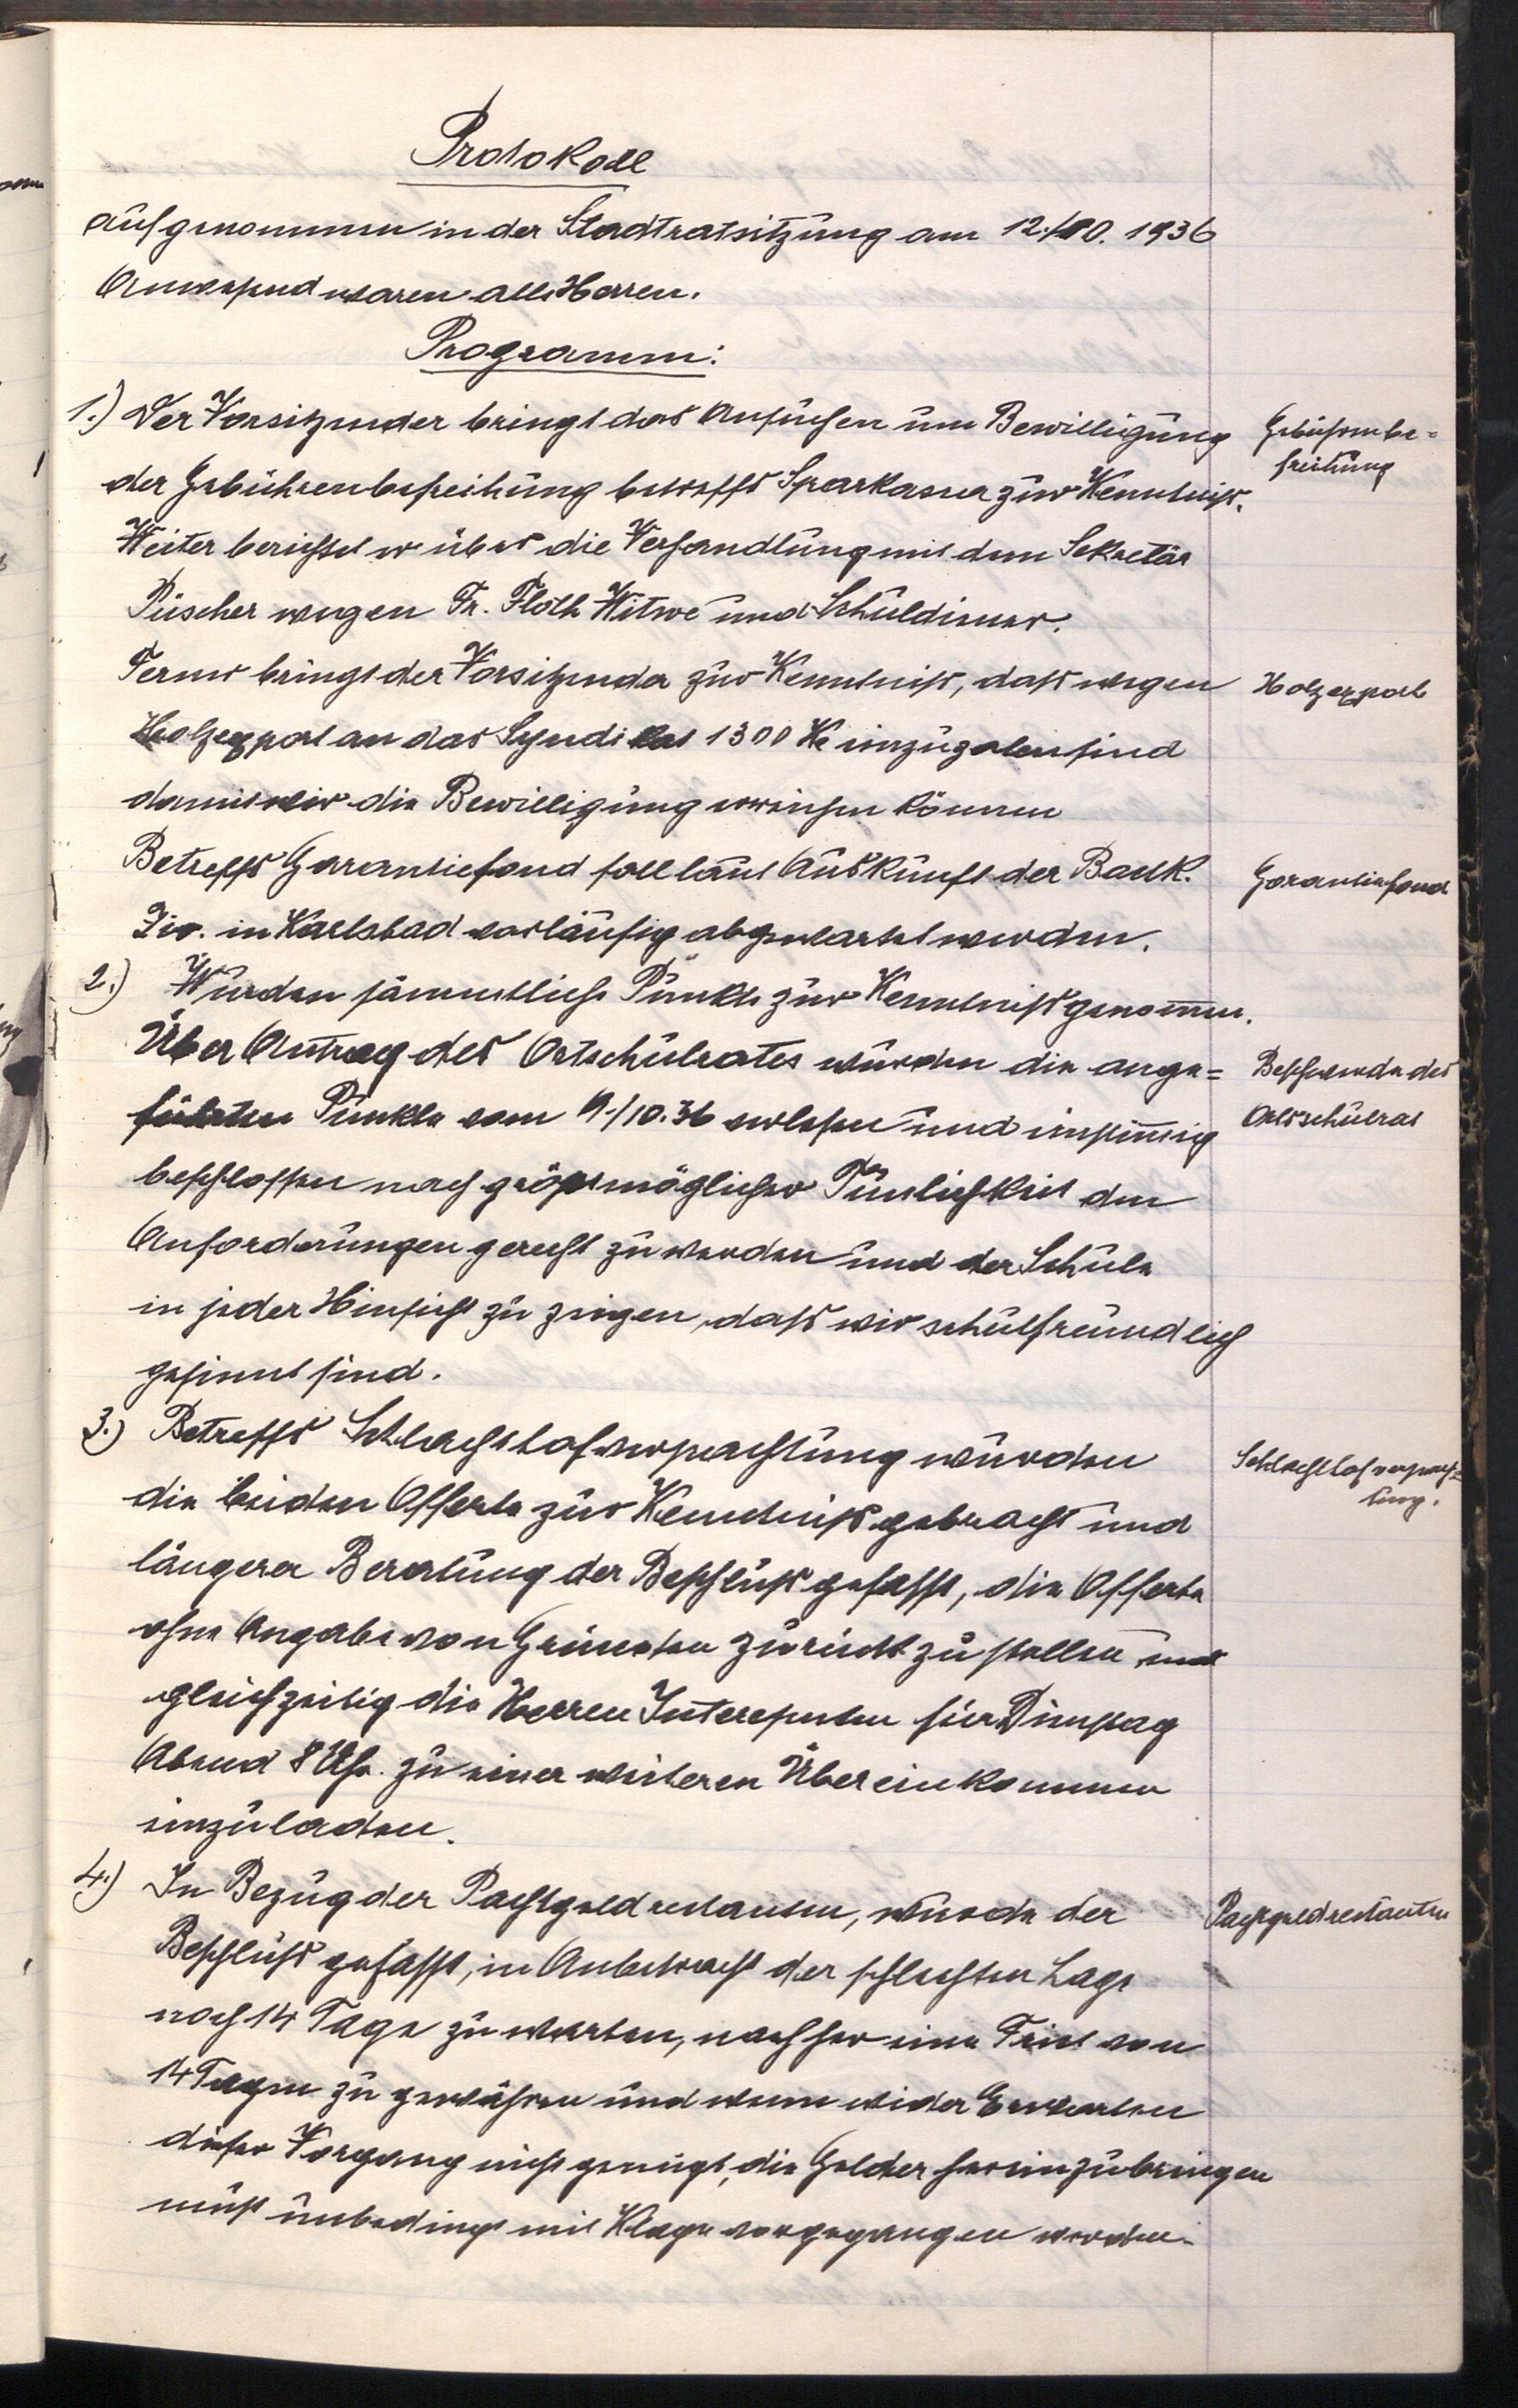 Protokoll
aufgenommen in der Stadtratsitzung am 12./10. 1936
Anwesend waren alle Herren.
Programm:
1.) Der Vorsitzender bringt das Ansuchen um Bewilligung
Gebührenbe=
freihung
der Gebührenbefreihung betreffs Sparkassa zur Kenntniss.
Weiter berichtet er über die Verhandlung mit dem Sekretär
Püscher wegen Fr. Floth Witwe und Schuldiener.
Ferner bringt der Vorsitzender zur Kenntniss, dass wegen
Holzexport
Holzexport an das Syndikat 1300 Kc einzuzalen sind
damit wir die Bewilligung erreichen können
Betreffs Garantiefond soll laut Auskunft der Bank.
Garantiefond
in Karlsbad vorläufig abgewartet werden.
2.) Wurden sämmtliche Punkte zur Kenntniss genommen.
Über Antrag des Ortschulrates wurden die ange=
Beschwerde des
Ortsschulrat
führten Punkte vom 9./10.36 verlesen und einstimmig
beschlossen nach größtmöglicher Tunlichkeit den
Anforderungen gerecht zu werden und der Schule
in jeder Hinsicht zu zeigen, dass wir schulfreundlich
gesinnt sind.
3.) Betreffs Schlachthofverpachtung wurden
Schlachthofverpach=
tung.
die beiden Offerte zur Kenntniss gebracht und
längerer Beratung der Beschluss gefasst, die Offerte
ohne Angabe von Gründen zurückzustellen und
gleichzeitig die Herren Interesenten für Dienstag
Abend 8 Uhr. zu einer weiteren Übereinkommen
einzuladen.
4.) In Bezug der Pachtgeldrestanten, wurde der
Pachtgeldrestanten
Beschluss gefasst, in Anbetracht der schlechten Lage
noch 14 Tage zu warten, nachher eine Frist von
14 Tagen zu gewähren und wenn wider Erwarten
dieser Vorgang nicht genügt, die Gelder hereinzubringen
muss unbedingt mit Klage vorgegangen werden.